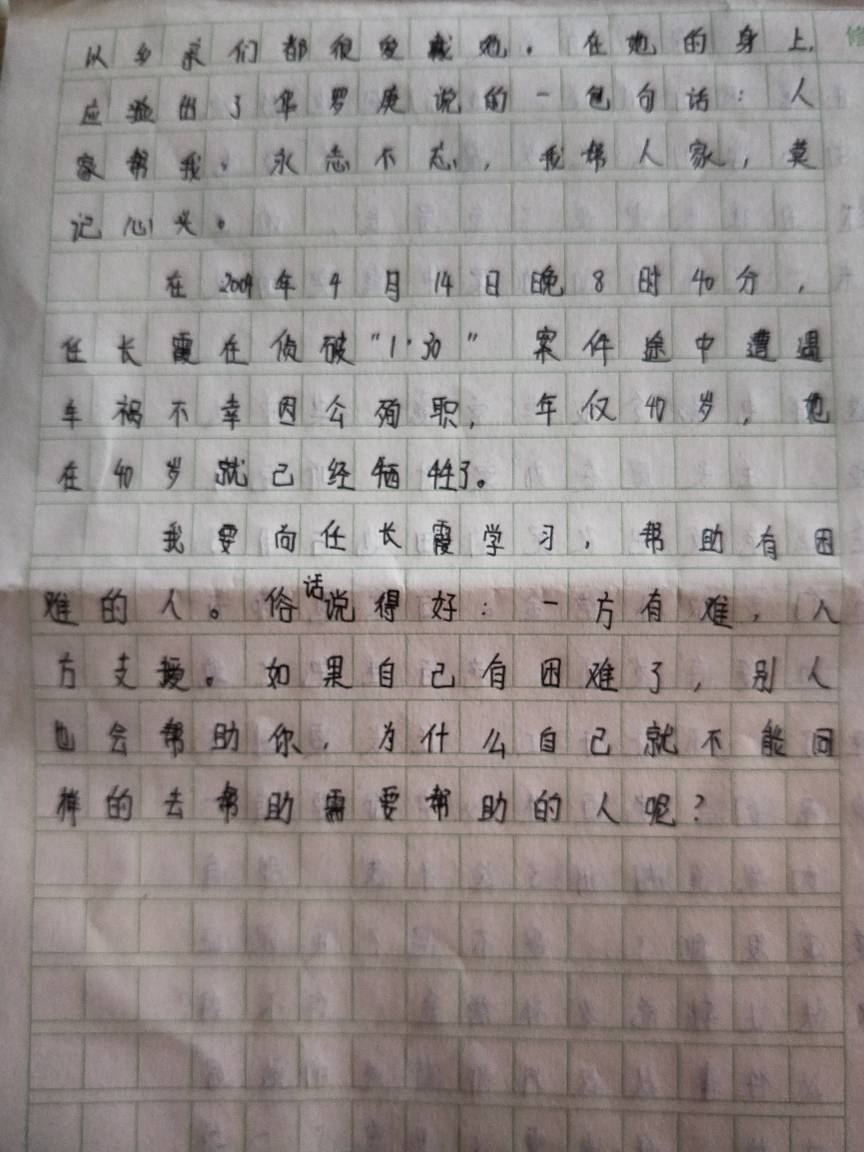 以乡亲们都很爱戴她。在她的身上,
应验出了华罗庚说的一句话:人
家帮我。永志不忘,我帮人家,莫
记心头。
在2004年4月14日晚8时40分,
任长霞在侦破"1·30"案件途中遭遇
车祸不幸因公殉职,年仅40岁,她
在40岁就已经牺牲了。
我要向任长霞学习,帮助有困
难的人。俗话说得好:一方有难,八
方支援。如果自己有困难了,别人
也会帮助你,为什么自己就不能同
样的去帮助需要帮助的人呢?